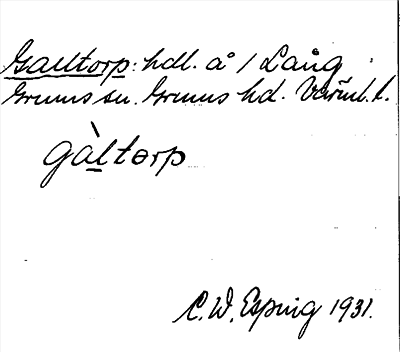 Galltorp: hdl. å 1 Lång
Grums sn. Grums hd. Värml. l.
gàltorp
C. W. Esping 1931.